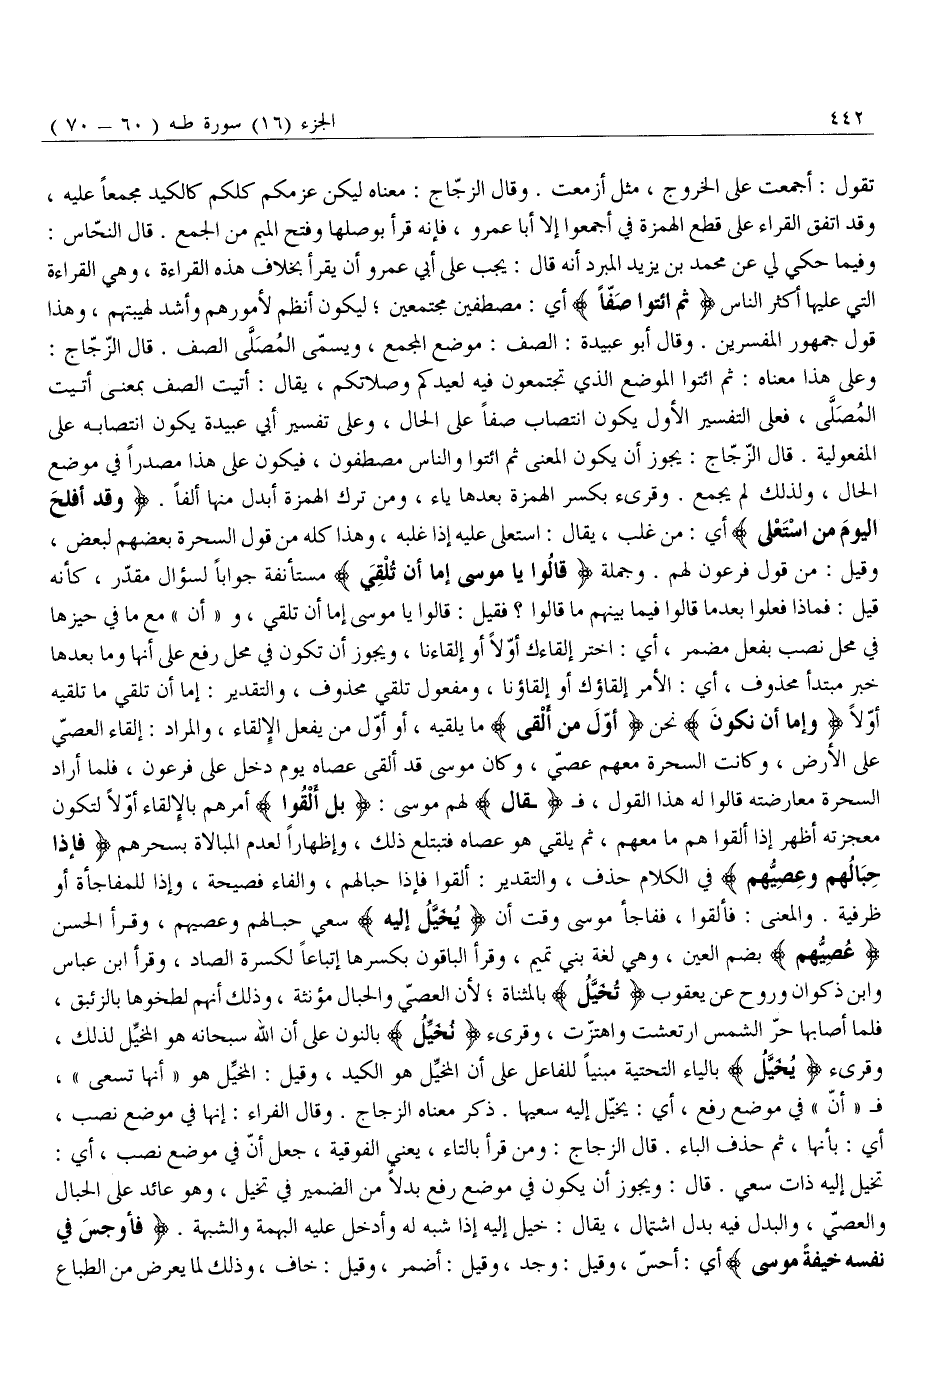 ٤٤٢ الجزء (١٦) سورة طه ( ٦٠ – ٧٠ )
تقول : أجمعت على الخروج ، مثل أزمعت . وقال الزجّاج : معناه ليكن عزمكم كلكم كالكيد مجمعاً عليه ،
وقد اتفق القراء على قطع الهمزة في أجمعوا إلا أبا عمرو ، فإنه قرأ بوصلها وفتح الميم من الجمع . قال النحّاس :
وفيما حكي لي عن محمد بن يزيد المبرد أنه قال : يجب على أبي عمرو أن يقرأ بخلاف هذه القراءة ، وهي القراءة
التي عليها أكثر الناس ﴿ ثم ائتوا صَفّاً ﴾ أي : مصطفين مجتمعين ؛ ليكون أنظم لأمورهم وأشد لهيبتهم ، وهذا
قول جمهور المفسرين . وقال أبو عبيدة : الصف : موضع المجمع ، ويسمّى المُصَلَّى الصف . قال الزّجّاج :
وعلى هذا معناه : ثم ائتوا الموضع الذي تجتمعون فيه لعيدكم وصلاتكم ، يقال : أتيت الصف بمعنى أتيت
المُصَلَّى ، فعلى التفسير الأول يكون انتصاب صفاً على الحال ، وعلى تفسير أبي عبيدة يكون انتصابه على
المفعولية . قال الزّجّاج : يجوز أن يكون المعنى ثم ائتوا والناس مصطفون ، فيكون على هذا مصدراً في موضع
الحال ، ولذلك لم يجمع . وقرىء بكسر الهمزة بعدها ياء ، ومن ترك الهمزة أبدل منها ألفاً . ﴿ وقد أفلحَ
اليومَ من اسْتَعْلى ﴾ أي : من غلب ، يقال : استعلى عليه إذا غلبه ، وهذا كله من قول السحرة بعضهم لبعض ،
وقيل : من قول فرعون لهم . وجملة ﴿ قالُوا يا موسى إما أن تُلْقِيَ ﴾ مستأنفة جواباً لسؤال مقدّر ، كأنه
قيل : فماذا فعلوا بعدما قالوا فيما بينهم ما قالوا ؟ فقيل : قالوا يا موسى إما أن تلقي ، و « أن » مع ما في حيزها
في محل نصب بفعل مضمر ، أي : اختر إلقاءك أوّلاً أو إلقاءنا ، ويجوز أن تكون في محل رفع على أنها وما بعدها
خبر مبتدأ محذوف ، أي : الأمر إلقاؤك أو إلقاؤنا ، ومفعول تلقي محذوف ، والتقدير : إما أن تلقي ما تلقيه
أوّلاً ﴿ وإما أن نكونَ ﴾ نحن ﴿ أوّلَ من ألْقى ﴾ ما يلقيه ، أو أوّل من يفعل الإلقاء ، والمراد : إلقاء العصيّ
على الأرض ، وكانت السحرة معهم عصيّ ، وكان موسى قد ألقى عصاه يوم دخل على فرعون ، فلما أراد
السحرة معارضته قالوا له هذا القول ، فـ ﴿ ـقال ﴾ لهم موسى : ﴿ بل ألْقُوا ﴾ أمرهم بالإلقاء أوّلاً لتكون
معجزته أظهر إذا ألقوا هم ما معهم ، ثم يلقي هو عصاه فتبتلع ذلك ، وإظهاراً لعدم المبالاة بسحرهم ﴿ فإذا
حِبَالُهم وعِصيُّهم ﴾ في الكلام حذف ، والتقدير : ألقوا فإذا حبالهم ، والفاء فصيحة ، وإذا للمفاجأة أو
ظرفية . والمعنى : فألقوا ، ففاجأ موسى وقت أن ﴿ يُخيَّلُ إليه ﴾ سعي حبالهم وعصيهم ، وقرأ الحسن
﴿ عُصيُّهم ﴾ بضم العين ، وهي لغة بني تميم ، وقرأ الباقون بكسرها إتباعاً لكسرة الصاد ، وقرأ ابن عباس
وابن ذكوان وروح عن يعقوب ﴿ تُخيَّلُ ﴾ بالمثناة ؛ لأن العصيّ والحبال مؤنثة ، وذلك أنهم لطخوها بالزئبق ،
فلما أصابها حرّ الشمس ارتعشت واهتزّت ، وقرىء ﴿ نُخيِّلُ ﴾ بالنون على أن الله سبحانه هو المخيِّل لذلك ،
وقرىء ﴿ يُخيَّلُ ﴾ بالياء التحتية مبنياً للفاعل على أن المخيِّل هو الكيد ، وقيل : المخيِّل هو « أنها تسعى » ،
فـ « أنّ » في موضع رفع ، أي : يخيّل إليه سعيها . ذكر معناه الزجاج . وقال الفراء : إنها في موضع نصب ،
أي : بأنها ، ثم حذف الباء . قال الزجاج : ومن قرأ بالتاء ، يعني الفوقية ، جعل أنّ في موضع نصب ، أي :
تخيل إليه ذات سعي . قال : ويجوز أن يكون في موضع رفع بدلاً من الضمير في تخيل ، وهو عائد على الحبال
والعصيّ ، والبدل فيه بدل اشتمال ، يقال : خيل إليه إذا شبه له وأدخل عليه البهمة والشبهة . ﴿ فأوجسَ في
نفسه خيفةً موسى ﴾ أي : أحسّ ، وقيل : وجد ، وقيل : أضمر ، وقيل : خاف ، وذلك لما يعرض من الطباع